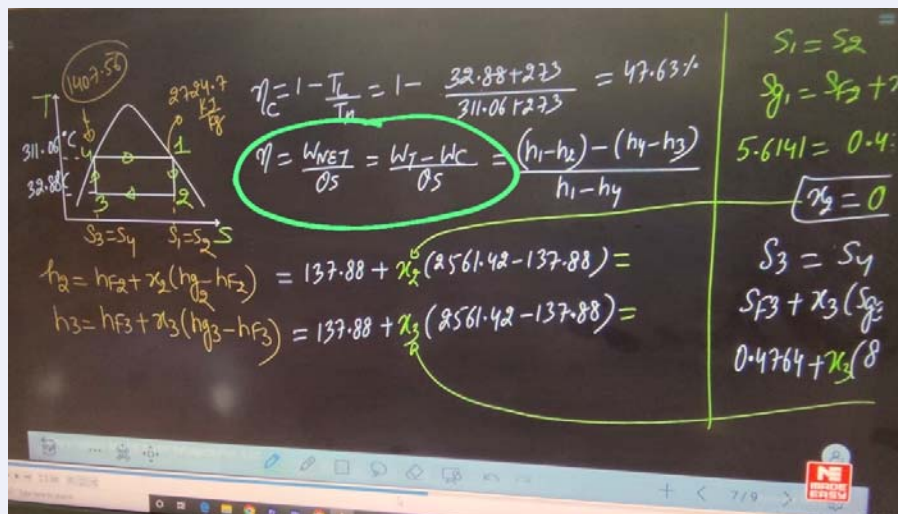 1407.56
2724.7
kJ/kg
T
311.06°C
32.88
4
1
3
2
S3=S4
S1=S2
S
ηC = 1 - TL/TH = 1 - (32.88+273)/(311.06+273) = 47.63%
η = WNET/QS = (WT - WC)/QS = ((h1-h2) - (h4-h3))/(h1-h4)
h2 = hF2 + x2(hg2 - hF2) = 137.88 + x2(2561.42 - 137.88) =
h3 = hF3 + x3(hg3 - hF3) = 137.88 + x3(2561.42 - 137.88) =
S1 = S2
Sg1 = SF2 + x
5.6141 = 0.4
x2 = 0
S3 = S4
SF3 + x3(Sg
0.4764 + x3(8
7/9
MADE EASY